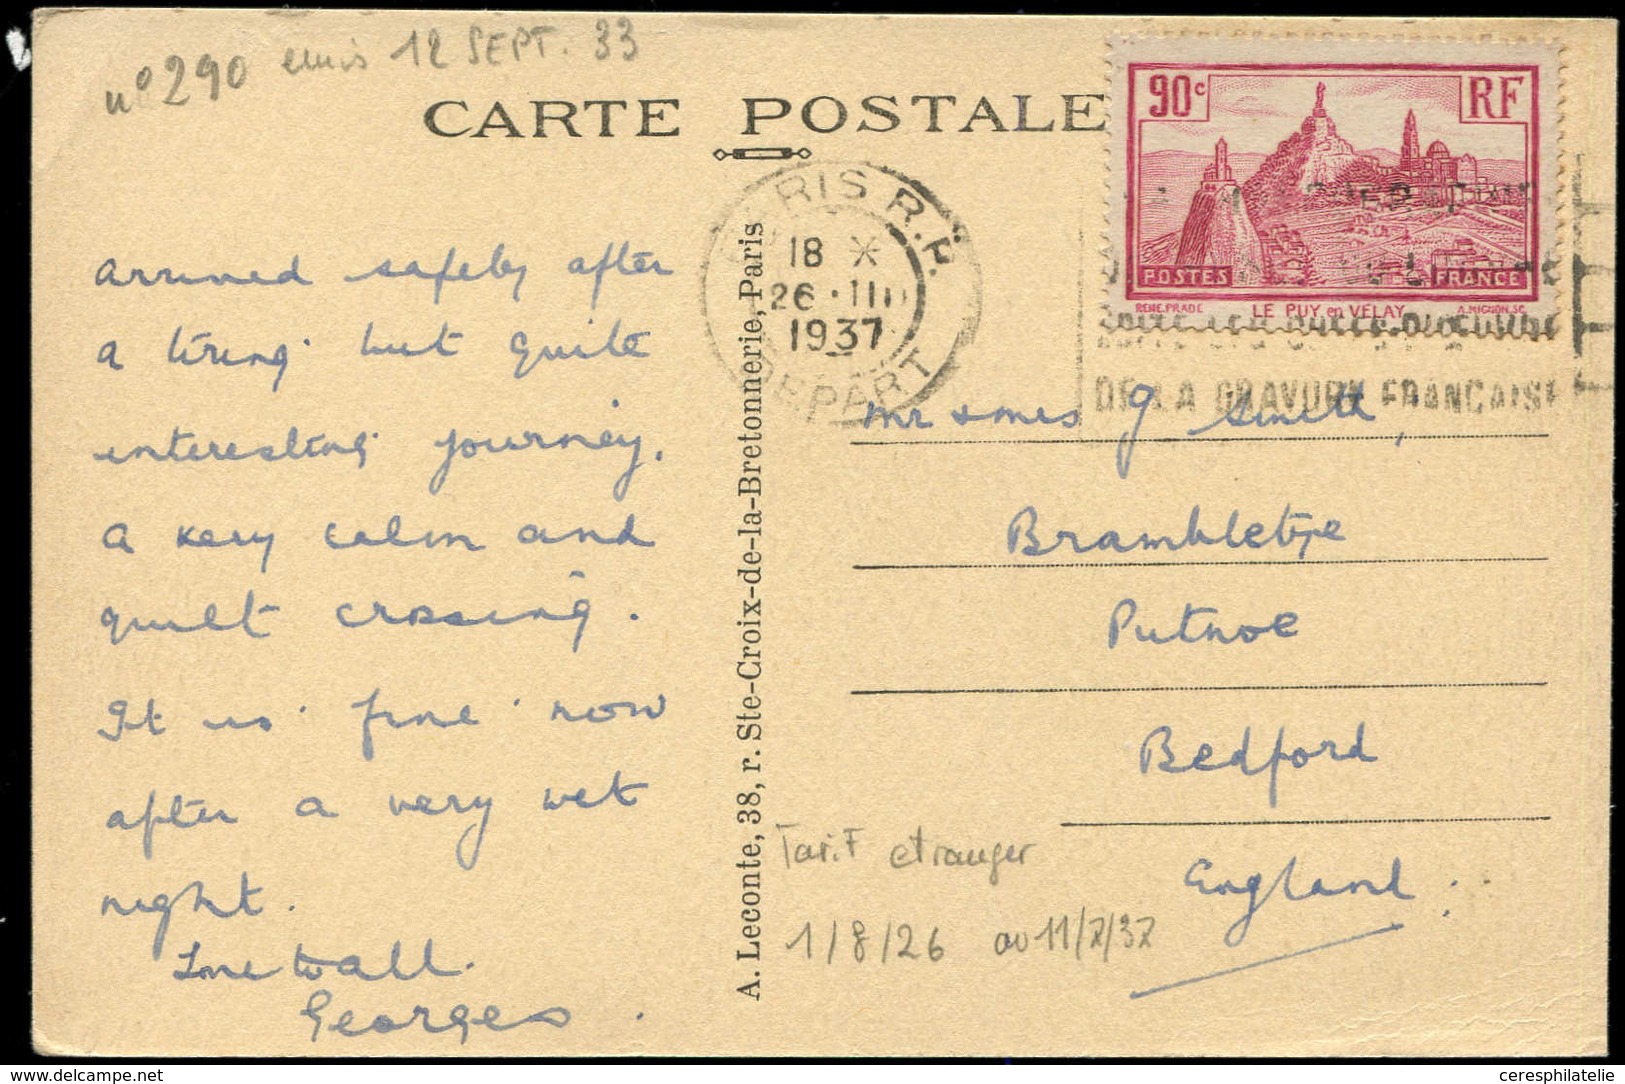 n° 290 émis 12 SEPT. 33
CARTE POSTALE
90c RF
POSTES FRANCE
RENE.PRADE LE PUY en VELAY A.MIGNON.SC.
PARIS R.P.
18 X
26 · III
1937
DEPART
DE LA GRAVURE FRANÇAISE
arrived safely after
a tiring but quite
interesting journey.
a very calm and
quiet crossing.
It is fine now
after a very wet
night.
Love to all.
Georges.
A. Leconte, 38, r. Ste-Croix-de-la-Bretonnerie, Paris
Mr & Mrs J Smith,
Brambletye
Putnoe
Bedford
England.
Tarif etranger
1/8/26 au 11/7/37
ceresphilatelie